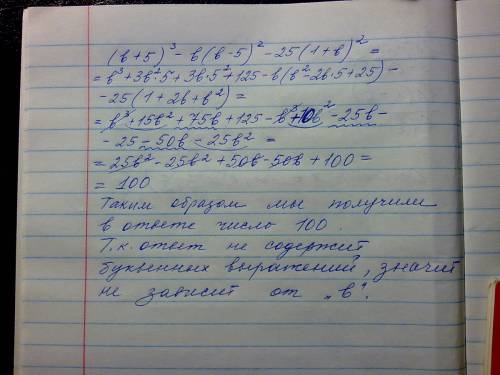 (в+5)³ - в(в-5)² - 25(1+в)² =
= в³+3в²·5+3в·5²+125-в(в²-2в·5+25)-
-25(1+2в+в²)=
= в³+15в²+75в+125-в³+10в²-25в-
-25-50в-25в² =
= 25в²-25в²+50в-50в+100=
= 100
Таким образом мы получили
в ответе число 100.
Т.к. ответ не содержит
буквенных выражений, значит
не зависит от „в“.